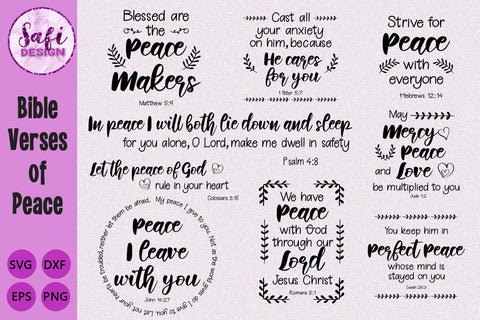 Safi
DESIGN
Bible
Verses
of
Peace
SVG
DXF
EPS
PNG
Blessed are
the
Peace
Makers
Matthew 5:9
Cast all
your anxiety
on him, because
He cares
for you
1 Peter 5:7
Strive for
Peace
with
everyone
Hebrews 12:14
In peace I will both lie down and sleep
for you alone, O Lord, make me dwell in safety
Psalm 4:8
Let the peace of God
rule in your heart
Colossians 3:15
May
Mercy
Peace
and Love
be multiplied to you
Jude 1:2
My peace I give to you. Not as the world gives do I give to you. Let not your heart be troubled, neither let them be afraid.
Peace
I leave
with you
John 14:27
We have
Peace
with God
through our
Lord
Jesus Christ
Romans 5:1
You keep him in
Perfect Peace
whose mind is
stayed on you
Isaiah 26:3